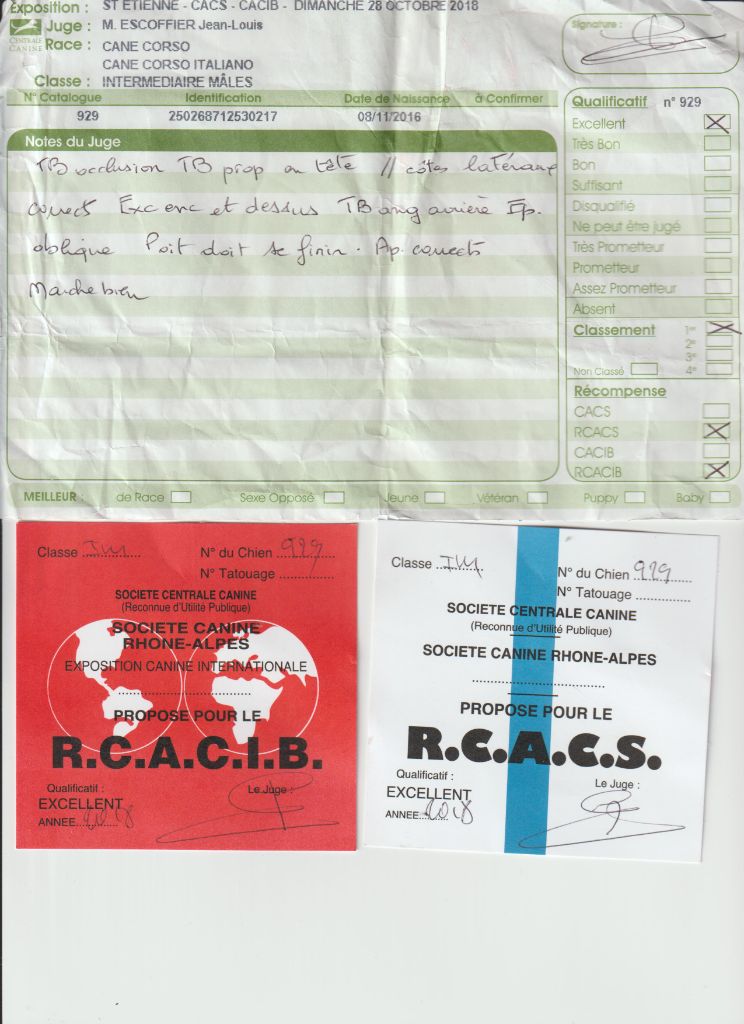 Exposition : ST ETIENNE - CACS - CACIB - DIMANCHE 28 OCTOBRE 2018
CENTRALE CANINE
Juge : M. ESCOFFIER Jean-Louis
Race : CANE CORSO
CANE CORSO ITALIANO
Classe : INTERMEDIAIRE MÂLES
Signature :
N° Catalogue Identification Date de Naissance à Confirmer
929 250268712530217 08/11/2016
Notes du Juge
TB occlusion TB prop en tête // côtés latéraux
correct Exc enc et dessus TB ang arrière Ep.
oblique Poit doit se finir. Ap. corrects
Marche bien
Qualificatif n° 929
Excellent
Très Bon
Bon
Suffisant
Disqualifié
Ne peut être jugé
Très Prometteur
Prometteur
Assez Prometteur
Absent
Classement 1er
2e
3e
Non Classé 4e
Récompense
CACS
RCACS
CACIB
RCACIB
MEILLEUR : de Race Sexe Opposé Jeune Vétéran Puppy Baby
Classe IM N° du Chien 929
N° Tatouage
SOCIETE CENTRALE CANINE
(Reconnue d'Utilité Publique)
SOCIETE CANINE
RHONE-ALPES
EXPOSITION CANINE INTERNATIONALE
PROPOSE POUR LE
R.C.A.C.I.B.
Qualificatif : Le Juge :
EXCELLENT
ANNEE 2018
Classe IM N° du Chien 929
N° Tatouage
SOCIETE CENTRALE CANINE
(Reconnue d'Utilité Publique)
SOCIETE CANINE RHONE-ALPES
PROPOSE POUR LE
R.C.A.C.S.
Qualificatif : Le Juge :
EXCELLENT
ANNEE 2018